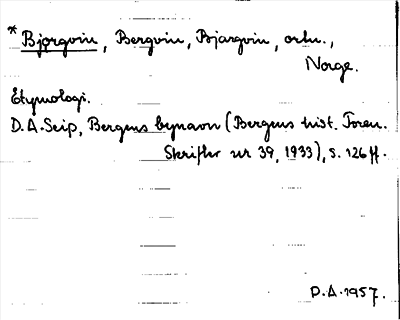 * Bjorgvin, Bergvin, Bjargvin, ortn.,
Norge.
Etymologi.
D.A. Seip, Bergens bynavn (Bergens hist. Foren.
Skrifter nr 39, 1933), s. 126 ff.
D.A. 1957.